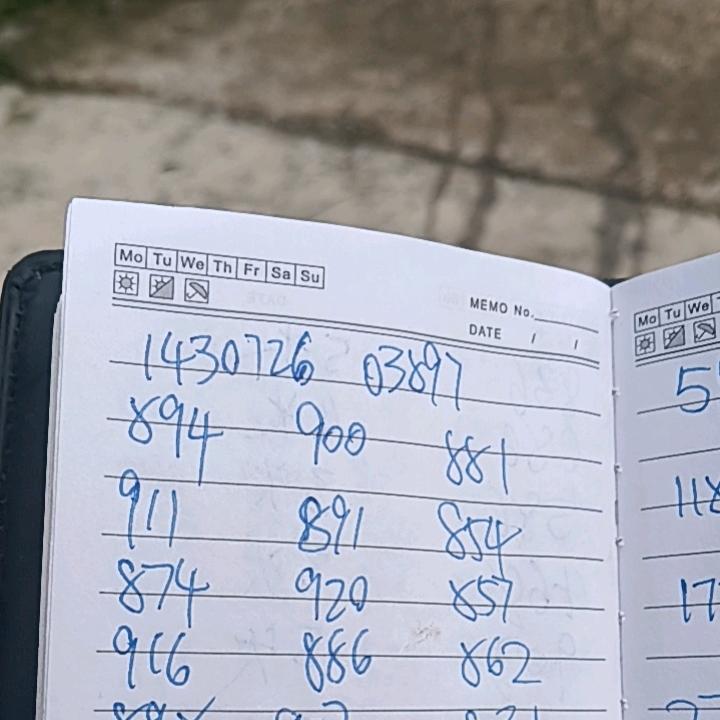 Mo Tu We Th Fr Sa Su
MEMO No.
DATE / /
1430726 03897
894 900 881
911 891 854
874 920 857
916 886 862
Mo Tu We
5
118
17